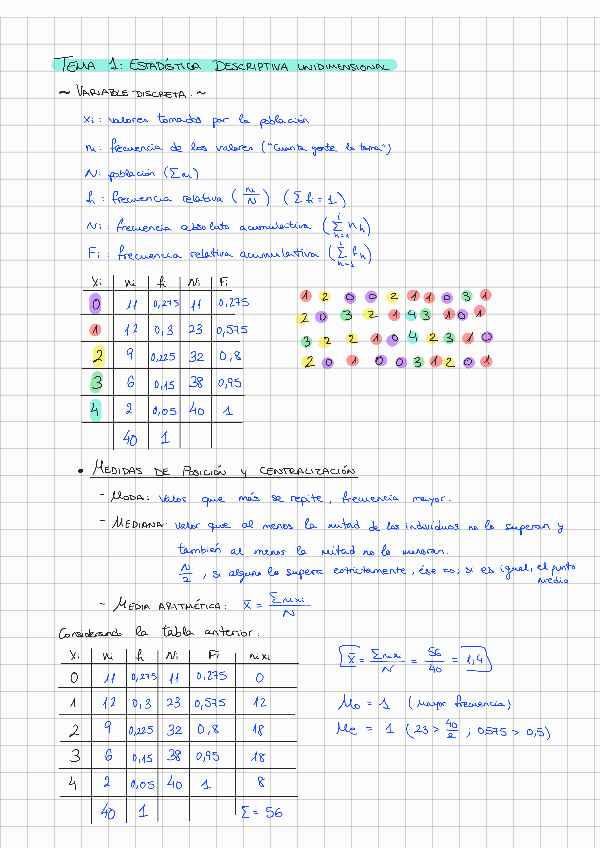 TEMA 1: ESTADÍSTICA DESCRIPTIVA UNIDIMENSIONAL
~ VARIABLE DISCRETA. ~
xi: valores tomados por la población
ni: frecuencia de los valores ("Cuanta gente lo toma")
N: población (Σni)
fi: frecuencia relativa (ni/N) (Σfi = 1)
Ni: frecuencia absoluta acumulativa (Σ_{h=1}^{i} nh)
Fi: frecuencia relativa acumulativa (Σ_{h=1}^{i} fh)
xi ni fi Ni Fi
0 11 0,275 11 0,275
1 12 0,3 23 0,575
2 9 0,225 32 0,8
3 6 0,15 38 0,95
4 2 0,05 40 1
40 1
1 2 0 0 2 1 1 0 3 1
2 0 3 2 1 4 3 1 0 1
3 2 2 1 0 4 2 3 1 0
2 0 1 0 0 3 1 2 0 1
• MEDIDAS DE POSICIÓN Y CENTRALIZACIÓN
- MODA: Valor que más se repite, frecuencia mayor.
- MEDIANA: Valor que al menos la mitad de los individuos no lo superan y
también al menos la mitad no lo minoran.
N/2, si alguno lo supera estrictamente, ése es; si es igual, el punto
medio
- MEDIA ARITMÉTICA: x̄ = Σnixi/N
Considerando la tabla anterior:
xi ni fi Ni Fi nixi
0 11 0,275 11 0,275 0
1 12 0,3 23 0,575 12
2 9 0,225 32 0,8 18
3 6 0,15 38 0,95 18
4 2 0,05 40 1 8
40 1 Σ = 56
x̄ = Σnixi/N = 56/40 = 1,4
Mo = 1 (mayor frecuencia)
Me = 1 (23 > 40/2 ; 0,575 > 0,5)